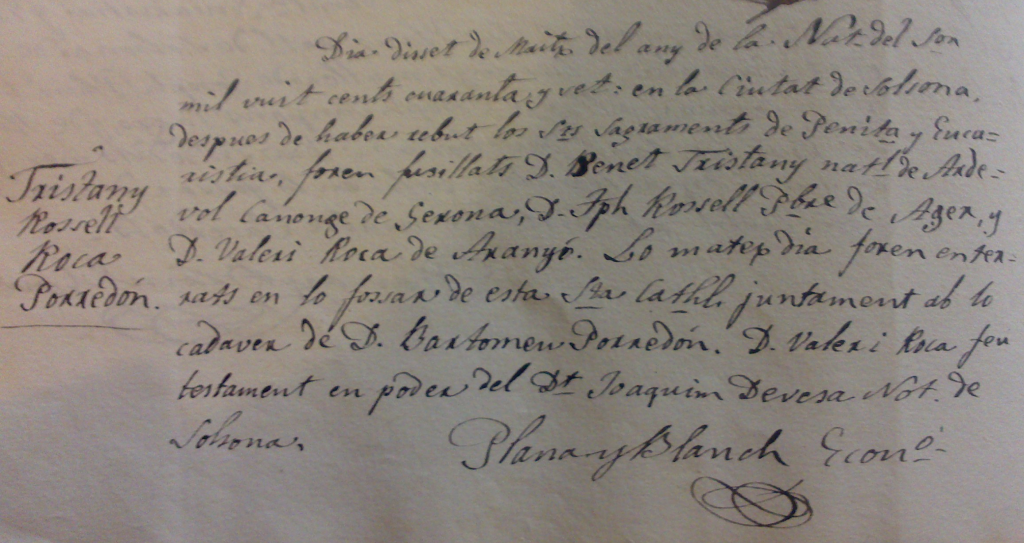 Dia disset de Maitx del any de la Nat. del Son
mil vuit cents cuaranta y vet: en la Ciutat de Solsona,
despues de haber rebut los Sts Sagraments de Penita y Euca=
ristia, foren fusillats D. Benet Tristany natl de Arde=
vol Canonge de Gerona, D. Jph Rossell Pbre de Ager, y
D. Valeri Roca de Aranyó. Lo mateix dia foren enter=
rats en lo fossar de esta Sta Cathl. juntament ab lo
cadaver de D. Bartomeu Porredón. D. Valeri Roca feu
testament en poder del Dt Joaquim Devesa Not. de
Solsona.
Plana y Blanch Econo.
Tristany
Rossell
Roca
Porredón.